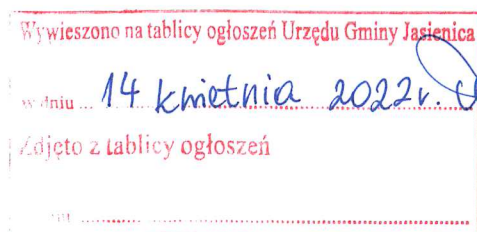 Wywieszono na tablicy ogłoszeń Urzędu Gminy Jasienica
w dniu ... 14 kwietnia 2022r.
Zdjęto z tablicy ogłoszeń